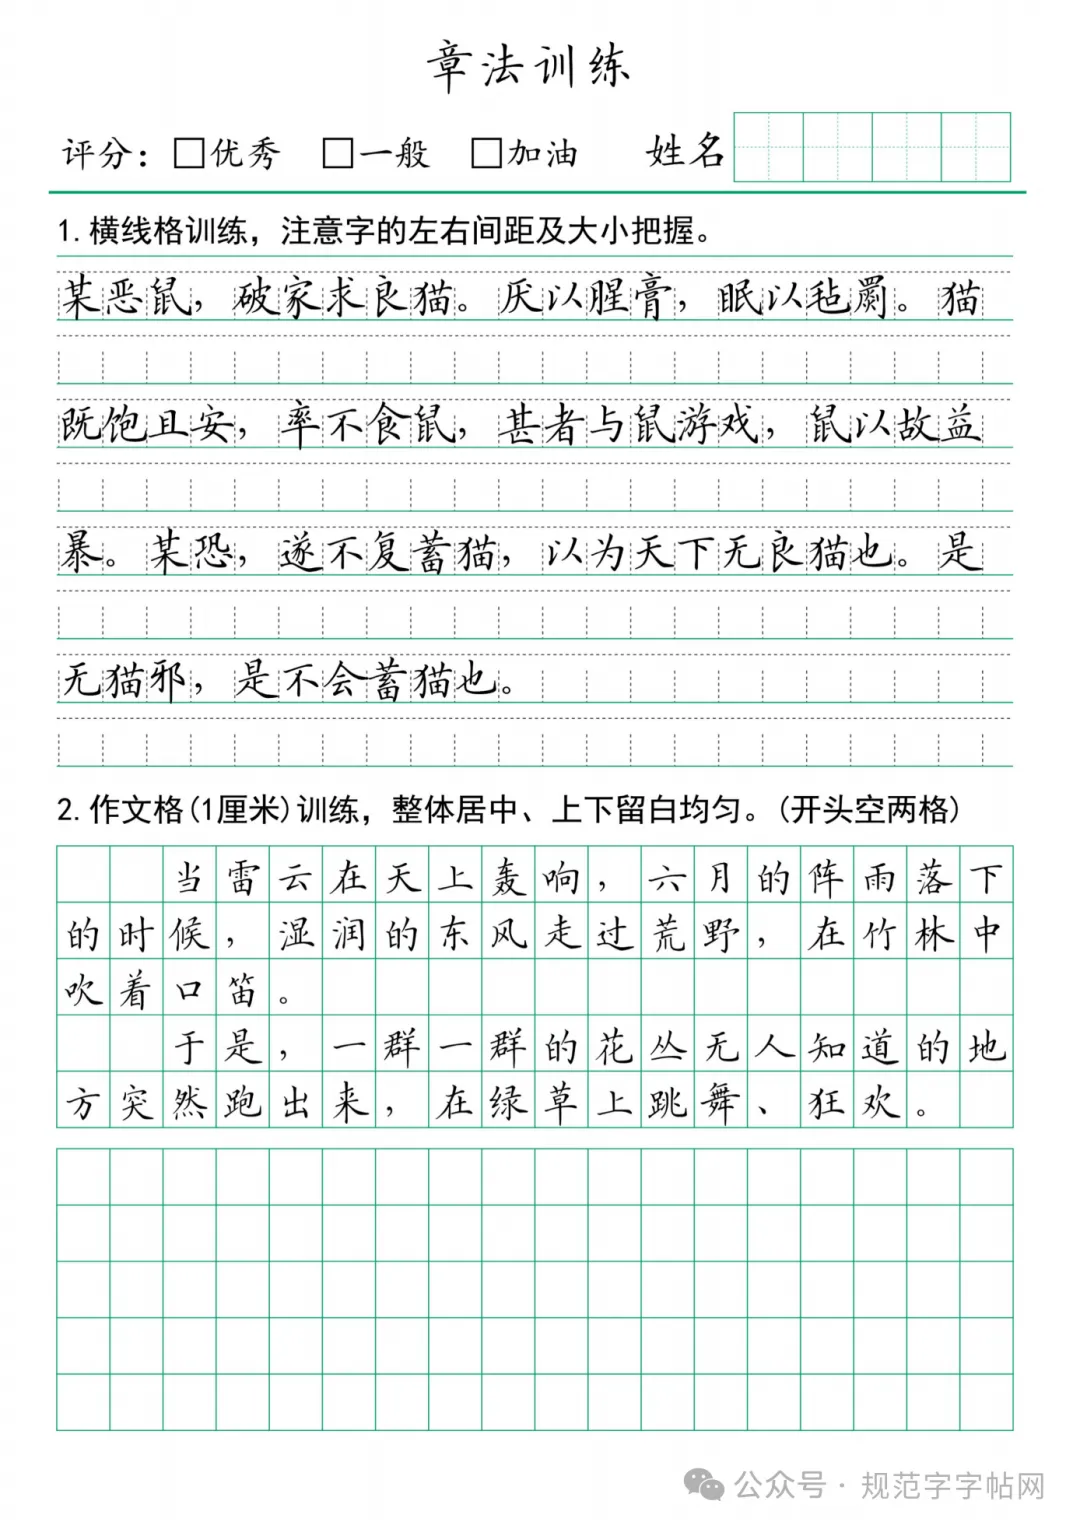 章法训练
评分：□优秀 □一般 □加油 姓名
1.横线格训练，注意字的左右间距及大小把握。
某恶鼠，破家求良猫。厌以腥膏，眠以毡罽。猫
既饱且安，率不食鼠，甚者与鼠游戏，鼠以故益
暴。某恐，遂不复蓄猫，以为天下无良猫也。是
无猫邪，是不会蓄猫也。
2.作文格(1厘米)训练，整体居中、上下留白均匀。(开头空两格)
当雷云在天上轰响，六月的阵雨落下
的时候，湿润的东风走过荒野，在竹林中
吹着口笛。
于是，一群一群的花丛无人知道的地
方突然跑出来，在绿草上跳舞、狂欢。
公众号·规范字字帖网